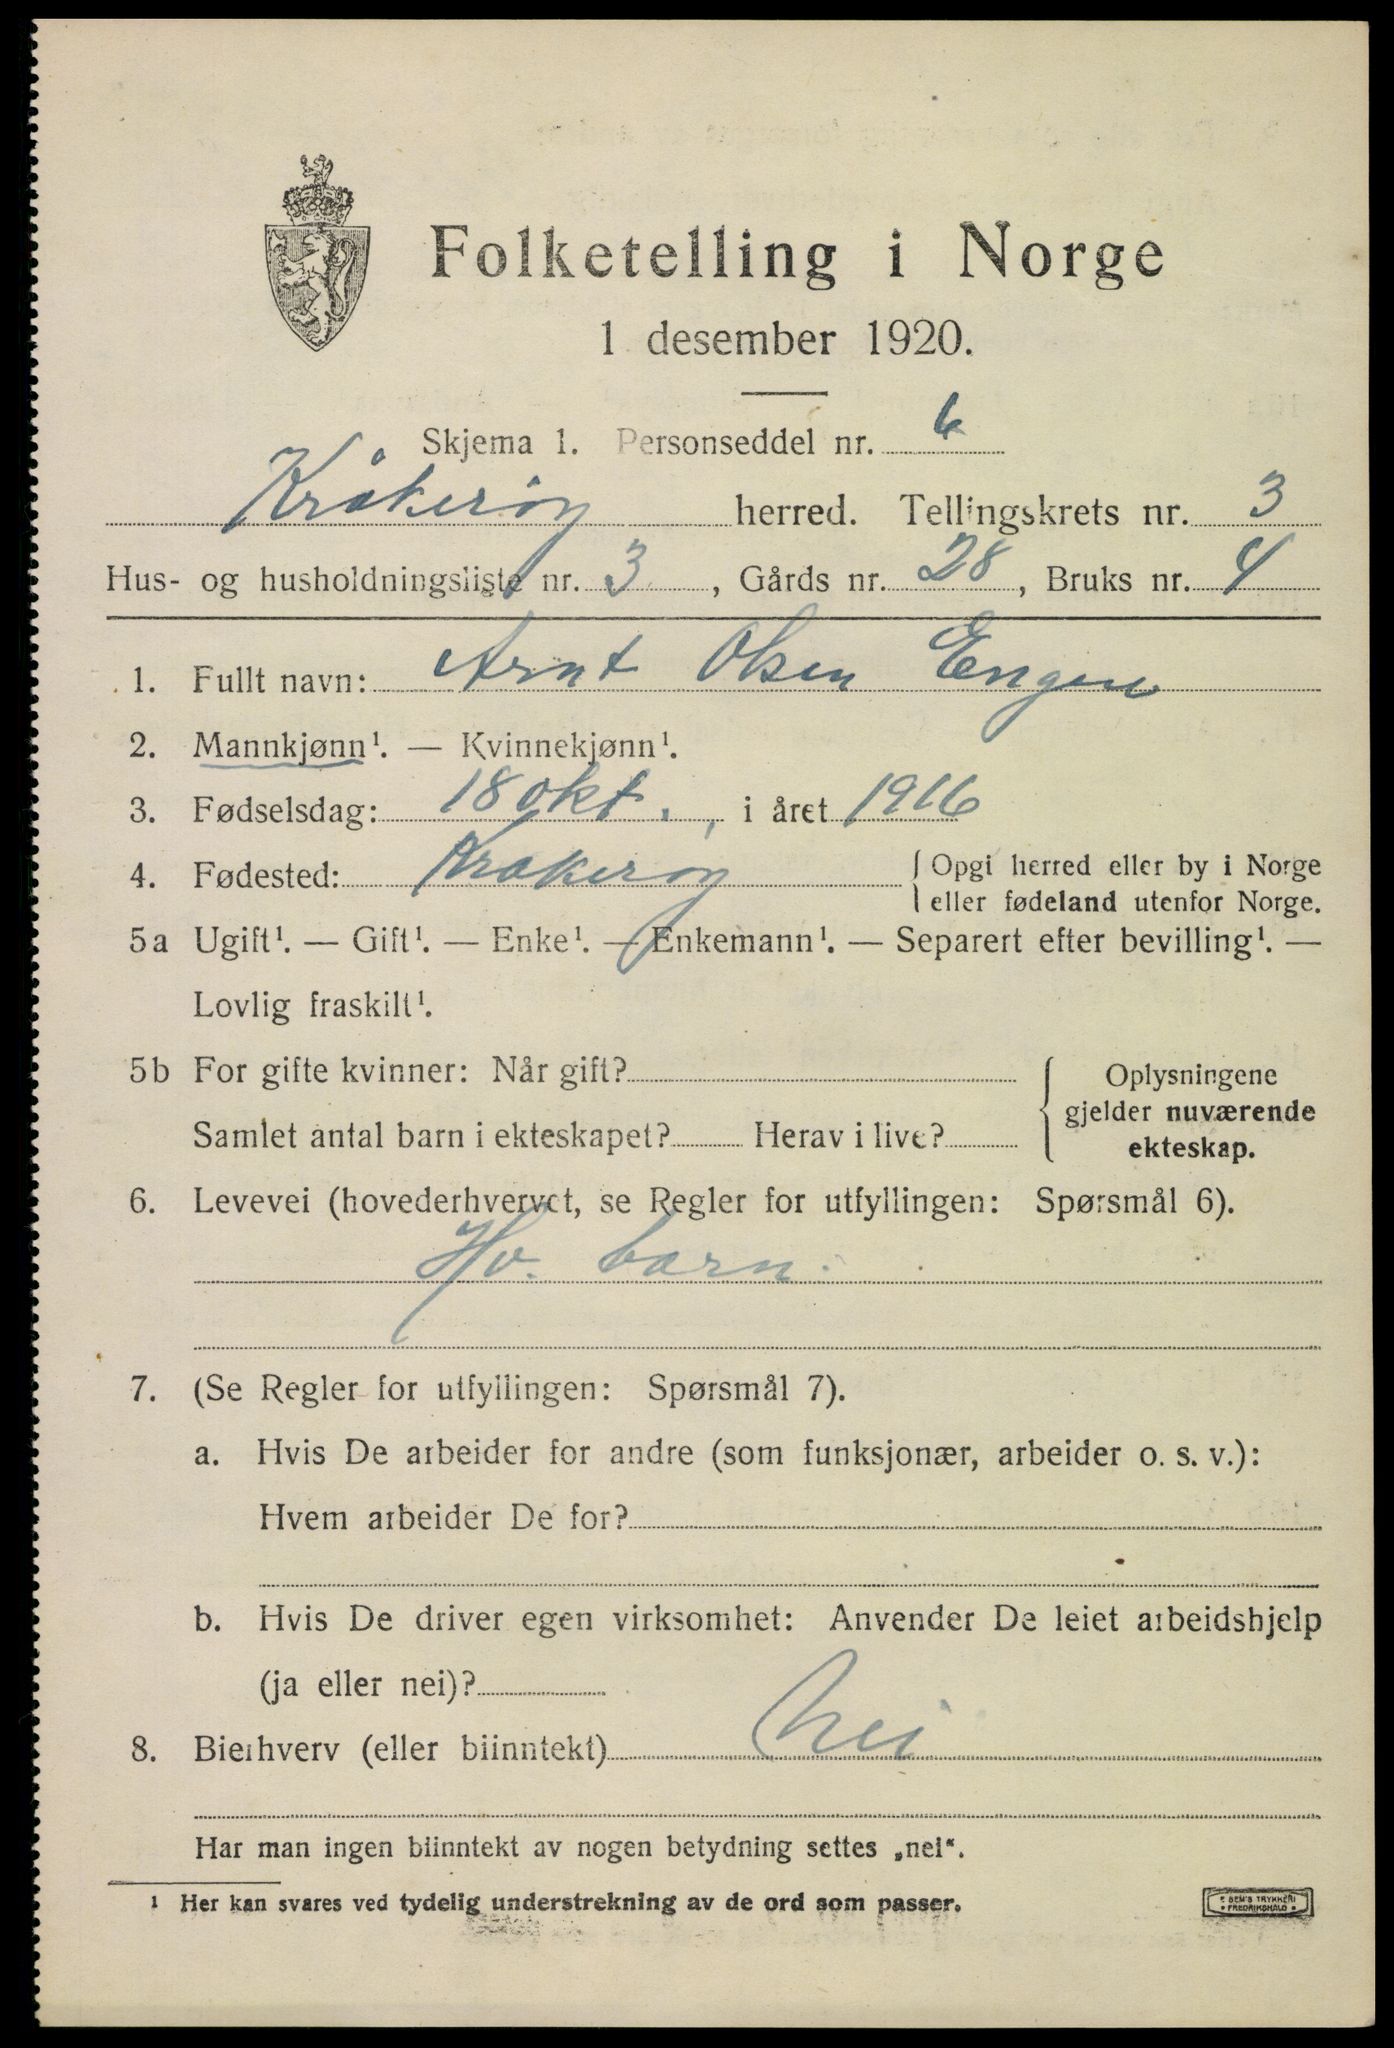 Folketelling i Norge
1 desember 1920.
Skjema 1. Personseddel nr. 6
Kråkerøy herred. Tellingskrets nr. 3
Hus- og husholdningsliste nr. 3, Gårds nr. 28, Bruks nr. 4
1. Fullt navn: Arnt Olsen Engene
2. Mannkjønn¹. — Kvinnekjønn¹.
3. Fødselsdag: 18 okt., i året 1916
4. Fødested: Krakerøy { Opgi herred eller by i Norge
eller fødeland utenfor Norge.
5a Ugift¹. — Gift¹. — Enke¹. — Enkemann¹. — Separert efter bevilling¹. —
Lovlig fraskilt¹.
5b For gifte kvinner: Når gift?
Samlet antal barn i ekteskapet? Herav i live?
{ Oplysningene
gjelder nuværende
ekteskap.
6. Levevei (hovederhvervet, se Regler for utfyllingen: Spørsmål 6).
Hv. barn.
7. (Se Regler for utfyllingen: Spørsmål 7).
a. Hvis De arbeider for andre (som funksjonær, arbeider o. s. v.):
Hvem arbeider De for?
b. Hvis De driver egen virksomhet: Anvender De leiet arbeidshjelp
(ja eller nei)?
8. Bierhverv (eller biinntekt) Nei
Har man ingen biinntekt av nogen betydning settes „nei“.
¹ Her kan svares ved tydelig understrekning av de ord som passer.
E SEM'S TRYKKERI
FREDRIKSHALD